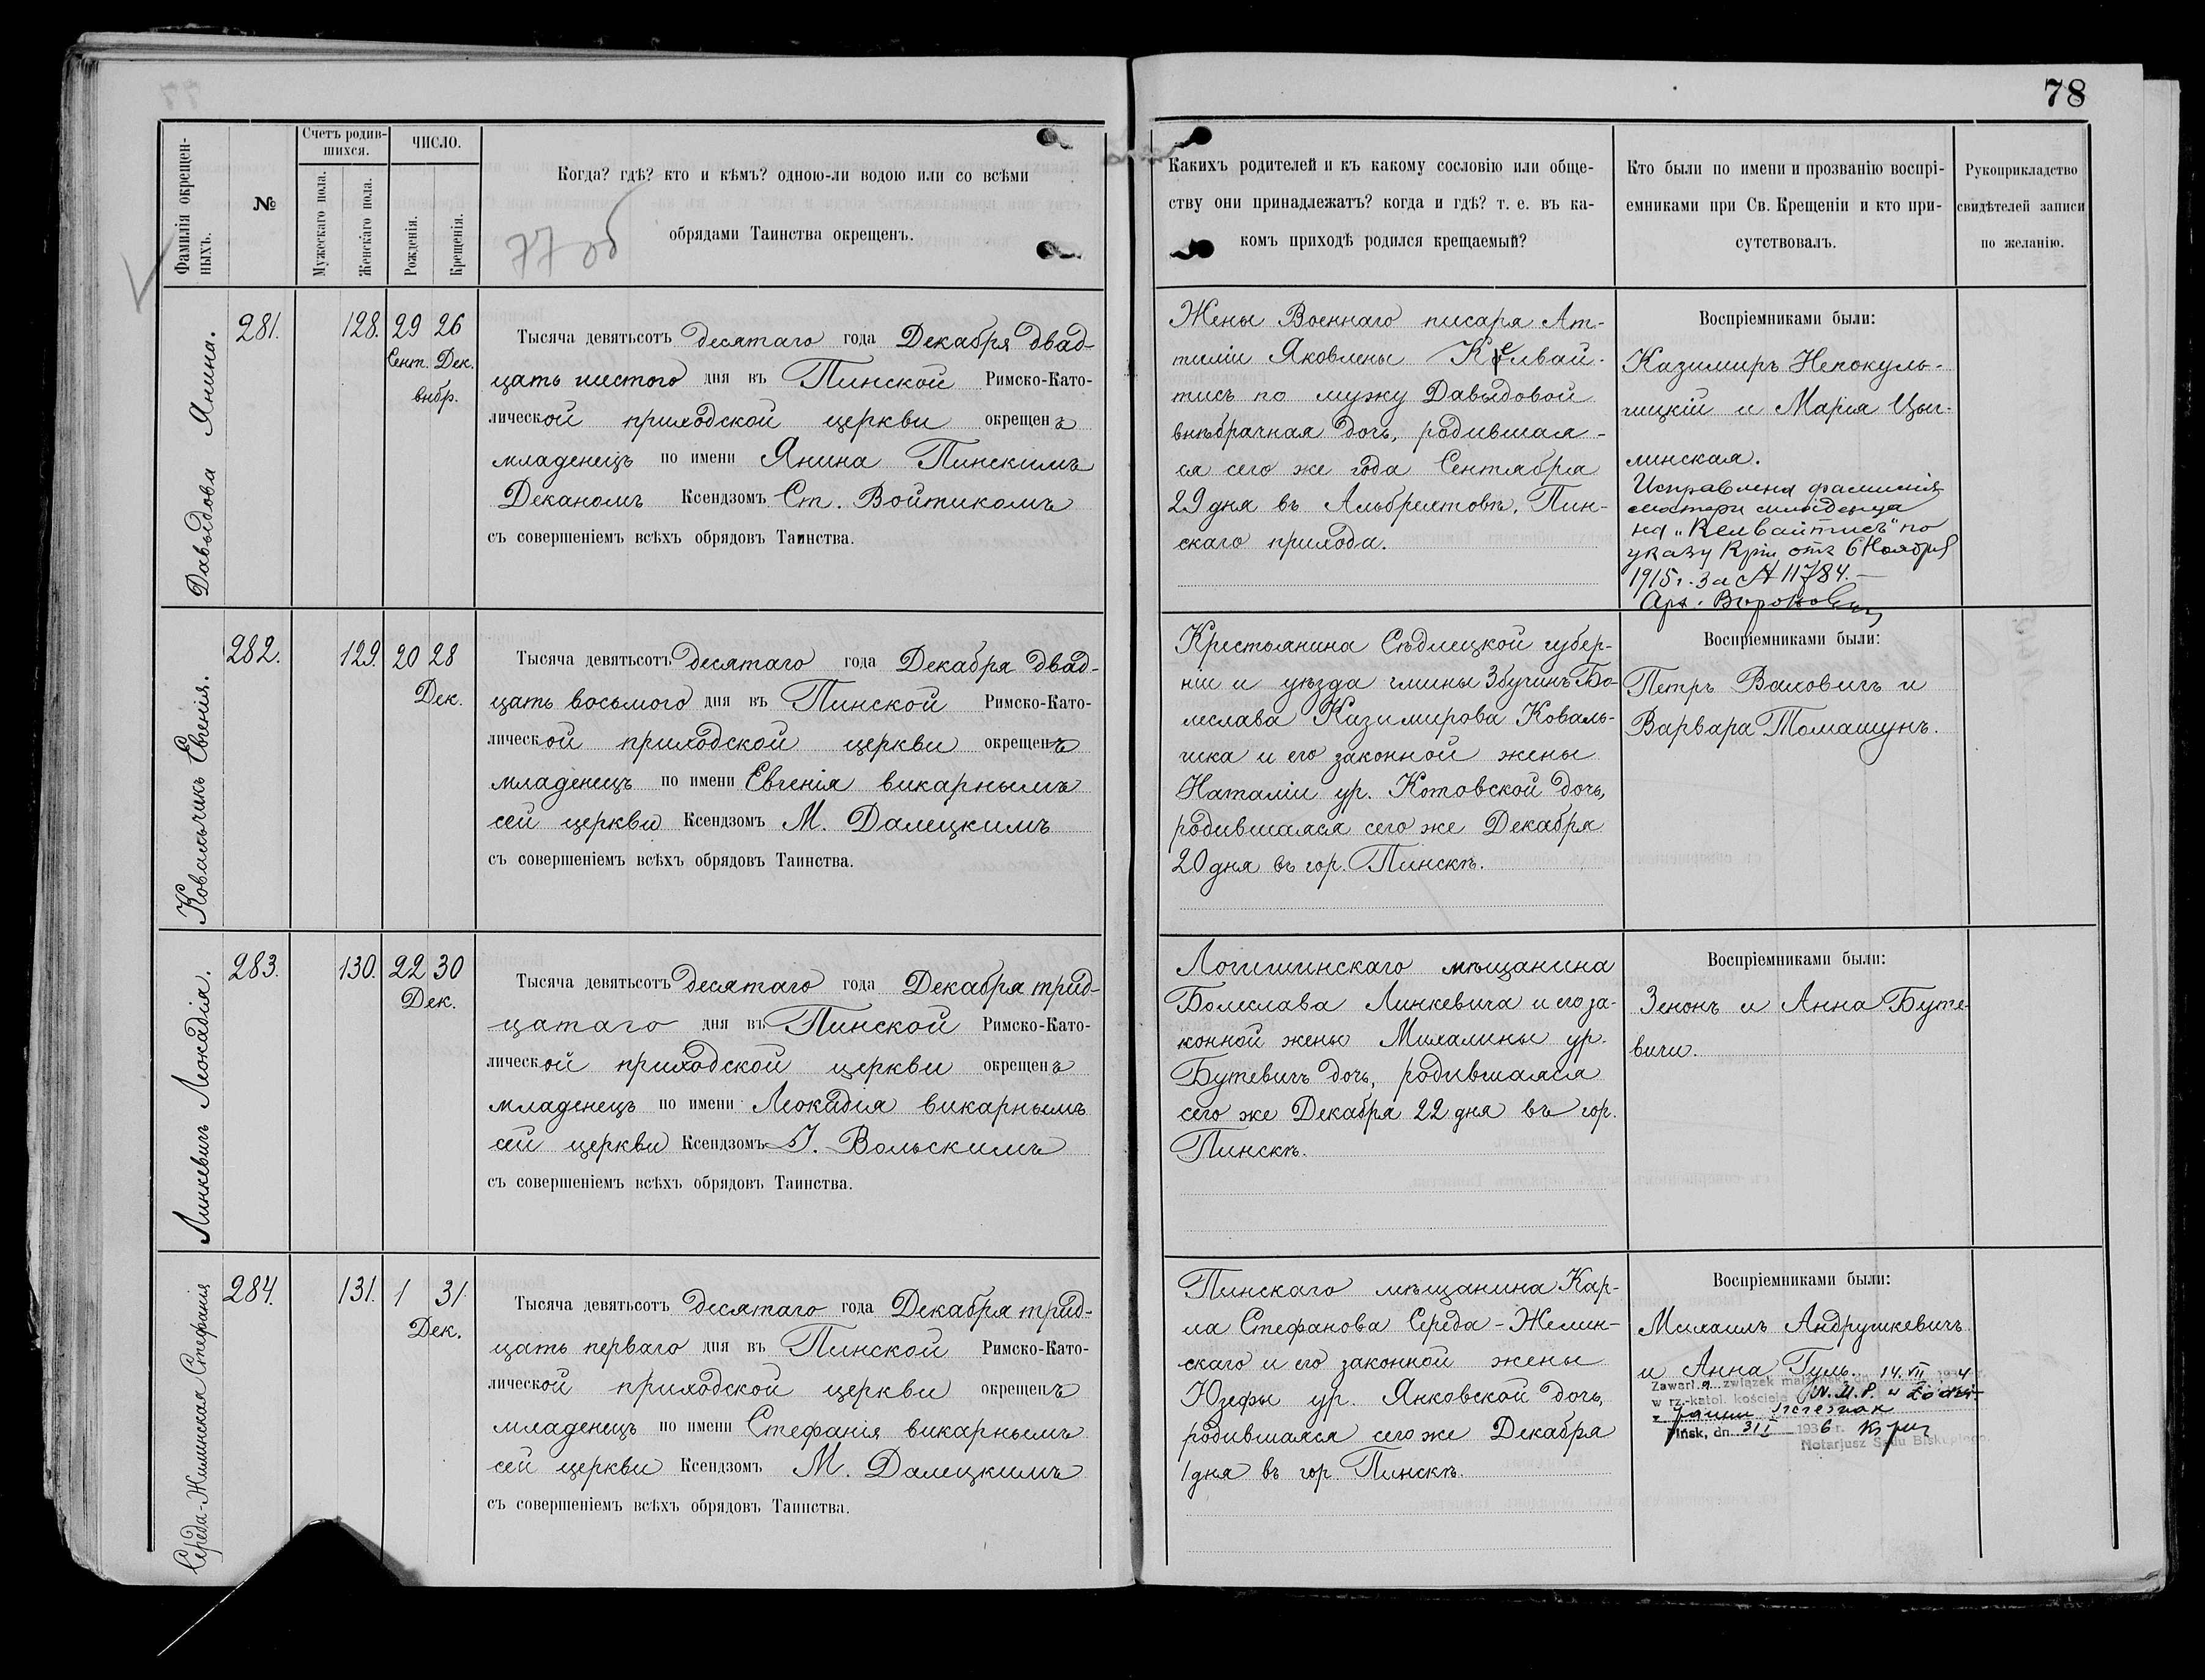 78
Фамилія окрещен-
ныхъ.
№
Счетъ родив-
шихся.
Мужескаго пола.
Женскаго пола.
ЧИСЛО.
Рожденія.
Крещенія.
Когда? гдѣ? кто и кѣмъ? одною-ли водою или со всѣми
обрядами Таинства окрещенъ.
77 об
Какихъ родителей и къ какому сословію или обще-
ству они принадлежатъ? когда и гдѣ? т. е. въ ка-
комъ приходѣ родился крещаемый?
Кто были по имени и прозванію воспрі-
емниками при Св. Крещеніи и кто при-
сутствовалъ.
Рукоприкладство
свидѣтелей записи
по желанію.
Давыдова Янина.
281.
128.
29 26
Сент. Дек.
внбр.
Тысяча девятьсотъ десятаго года Декабря двад-
цать шестого дня въ Пинской Римско-Като-
лической приходской церкви окрещенъ
младенецъ по имени Янина Пинскимъ
Деканомъ Ксендзомъ Ст. Войтикомъ
съ совершеніемъ всѣхъ обрядовъ Таинства.
Жены Военнаго писаря Ат-
тиліи Яковлены Келвай-
тисъ по мужу Давыдовой
внѣбрачная дочь, родившая-
ся сего же года Сентября
29 дня въ Альбрехтовѣ, Пин-
скаго прихода.
Воспріемниками были:
Казимиръ Непокуль-
чицкій и Марія Цыг-
линская.
Исправлена фамилія
матери младенца
на „Келвайтисъ" по
указу Кріи отъ 6 Ноября
1915 г. за № 11784.—
Ковальчикъ Евгенія.
282.
129.
20 28
Дек.
Тысяча девятьсотъ десятаго года Декабря двад-
цать восьмого дня въ Пинской Римско-Като-
лической приходской церкви окрещенъ
младенецъ по имени Евгенія викарнымъ
сей церкви Ксендзомъ М. Далецкимъ
съ совершеніемъ всѣхъ обрядовъ Таинства.
Крестьянина Сѣдлецкой губер-
ніи и уѣзда гмины Збучинъ Бо-
леслава Казимирова Коваль-
чика и его законной жены
Наталіи ур. Котовской дочь,
родившаяся сего же Декабря
20 дня въ гор. Пинскѣ.
Воспріемниками были:
Петръ Ваховичъ и
Варвара Томашунъ.
Линкевичъ Леокадія.
283.
130.
22 30
Дек.
Тысяча девятьсотъ десятаго года Декабря трид-
цатаго дня въ Пинской Римско-Като-
лической приходской церкви окрещенъ
младенецъ по имени Леокадія викарнымъ
сей церкви Ксендзомъ І. Вольскимъ
съ совершеніемъ всѣхъ обрядовъ Таинства.
Логишинскаго мѣщанина
Болеслава Линкевича и его за-
конной жены Михалины ур.
Бутевичъ дочь, родившаяся
сего же Декабря 22 дня въ гор.
Пинскѣ.
Воспріемниками были:
Зенонъ и Анна Буте-
вичи.
Середа-Жилинская Стефанія
284.
131.
1 31.
Дек.
Тысяча девятьсотъ десятаго года Декабря трид-
цать перваго дня въ Пинской Римско-Като-
лической приходской церкви окрещенъ
младенецъ по имени Стефанія викарнымъ
сей церкви Ксендзомъ М. Далецкимъ
съ совершеніемъ всѣхъ обрядовъ Таинства.
Пинскаго мѣщанина Кар-
ла Стефанова Середа-Желин-
скаго и его законной жены
Юзефы ур. Янковской дочь,
родившаяся сего же Декабря
1 дня въ гор. Пинскѣ.
Воспріемниками были:
Михаилъ Андрушкевичъ
и Анна Гуль.
Zawarł a związek małżeński dn. 14.VII
w rz.-katol. kościele N.M.P. w Łodzi
z Janem
Pińsk, dn. 31 I 1936 r.
Notarjusz Sądu Biskupiego.